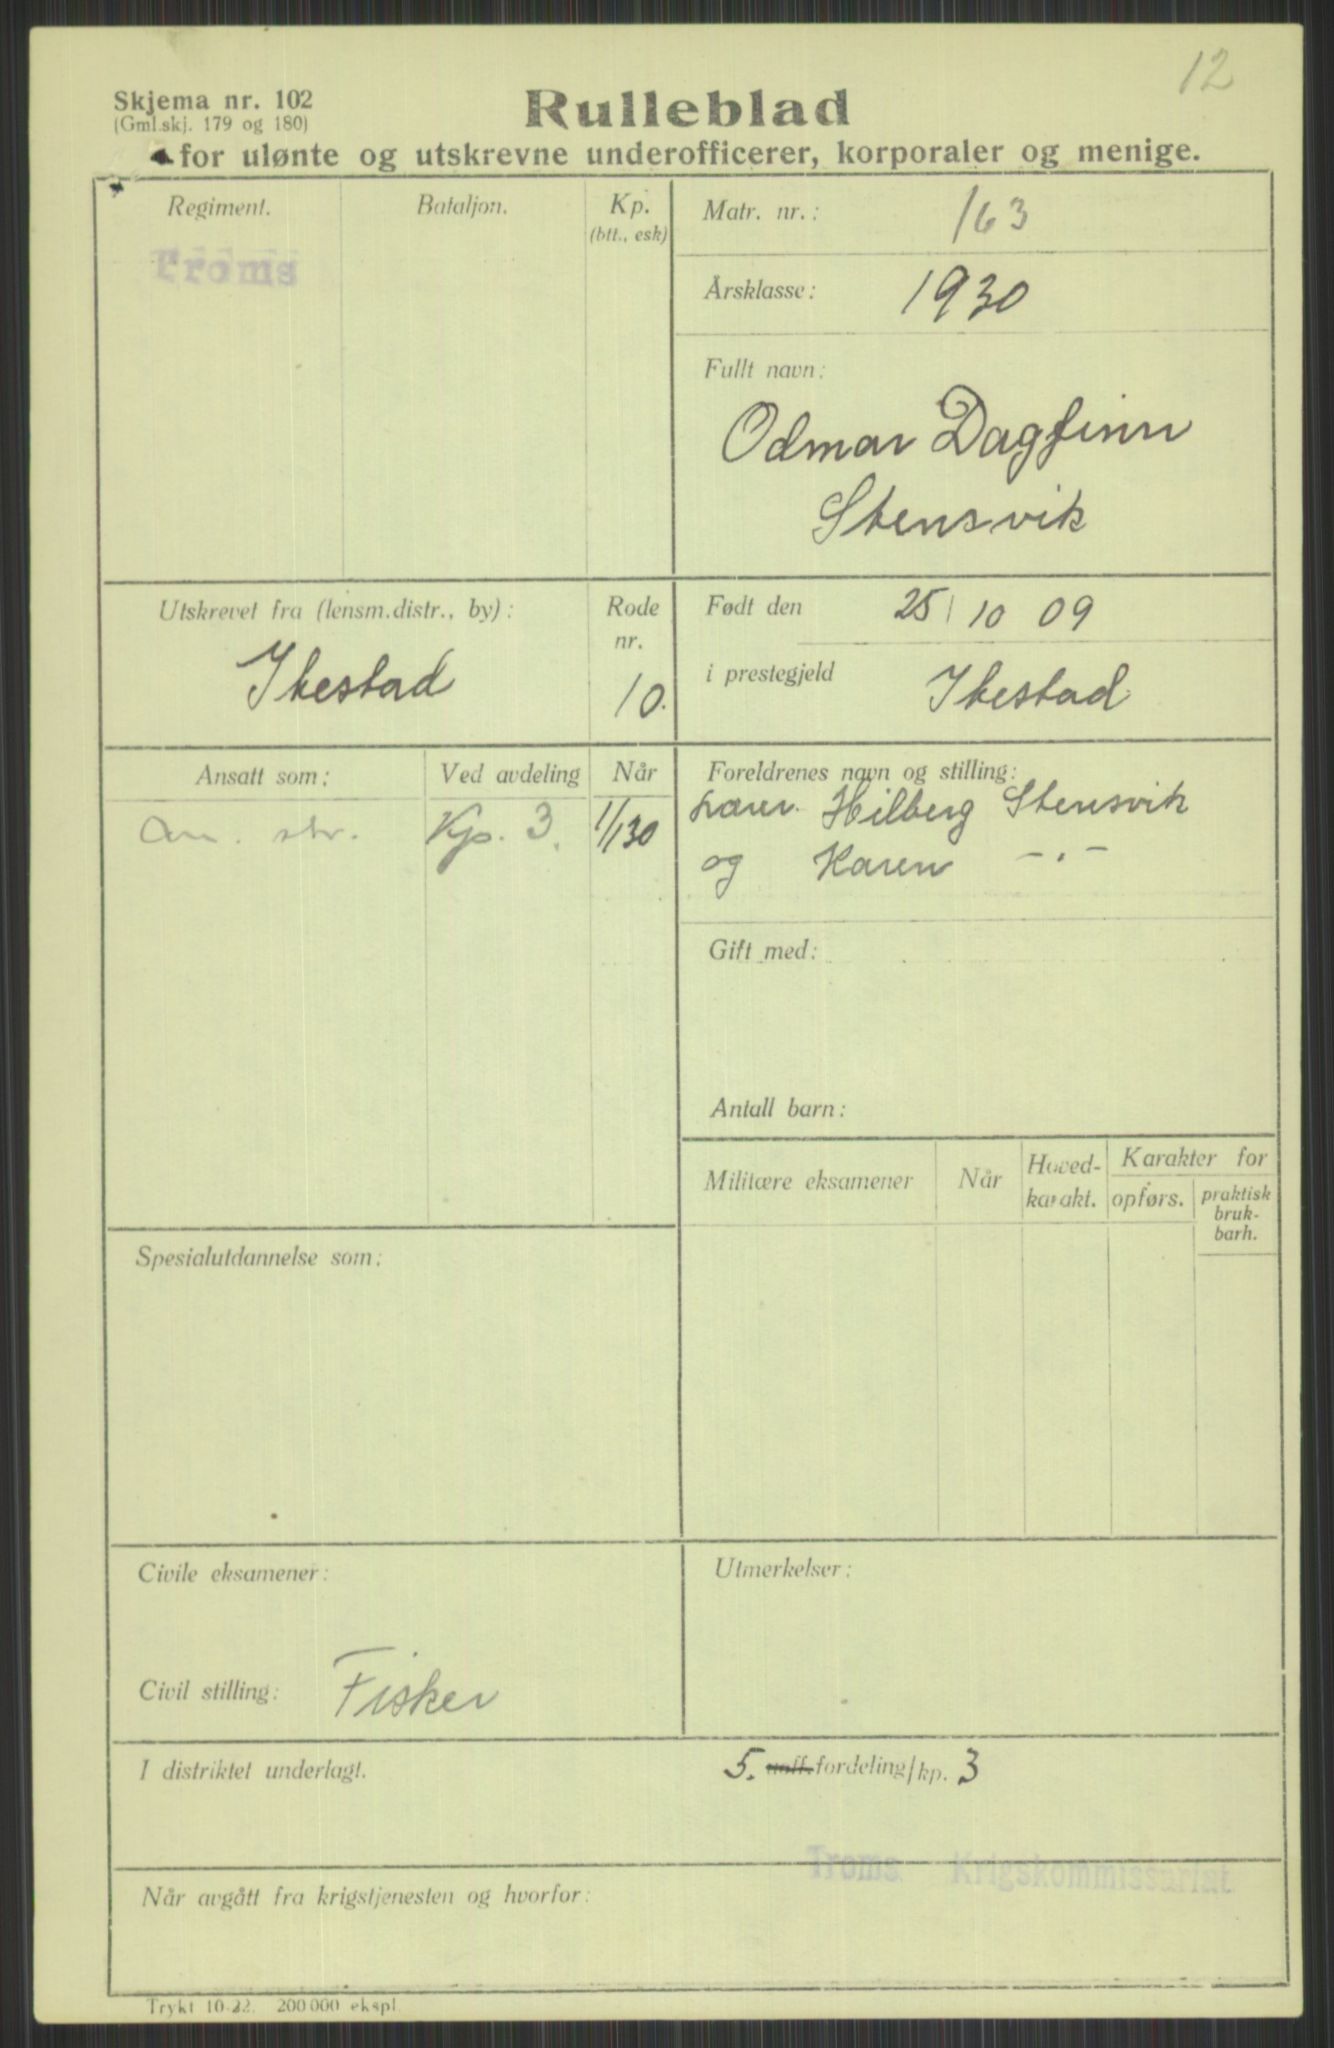 12
Skjema nr. 102
(Gml.skj. 179 og 180)
Rulleblad
for ulønte og utskrevne underofficerer, korporaler og menige.
Regiment. Bataljon. Kp.
(btt., esk)
Troms
Matr. nr.: 163
Årsklasse: 1930
Fullt navn:
Odmar Dagfinn
Stensvik
Utskrevet fra (lensm.distr., by): Rode
nr.
Ibestad 10.
Født den 25/10 09
i prestegjeld Ibestad
Ansatt som: Ved avdeling Når
an. str. Kp. 3. 1/1 30
Foreldrenes navn og stilling:
Lærer Hilberg Stensvik
og Karen -.-
Gift med:
Antall barn:
Militære eksamener Når Hoved-
karakt. Karakter for
opførs. praktisk
bruk-
barh.
Spesialutdannelse som:
Civile eksamener:
Civil stilling: Fisker
Utmerkelser:
I distriktet underlagt. 5. fordeling/kp. 3
Troms Krigskommissariat
Når avgått fra krigstjenesten og hvorfor:
Trykt 10-22. 200 000 ekspl.